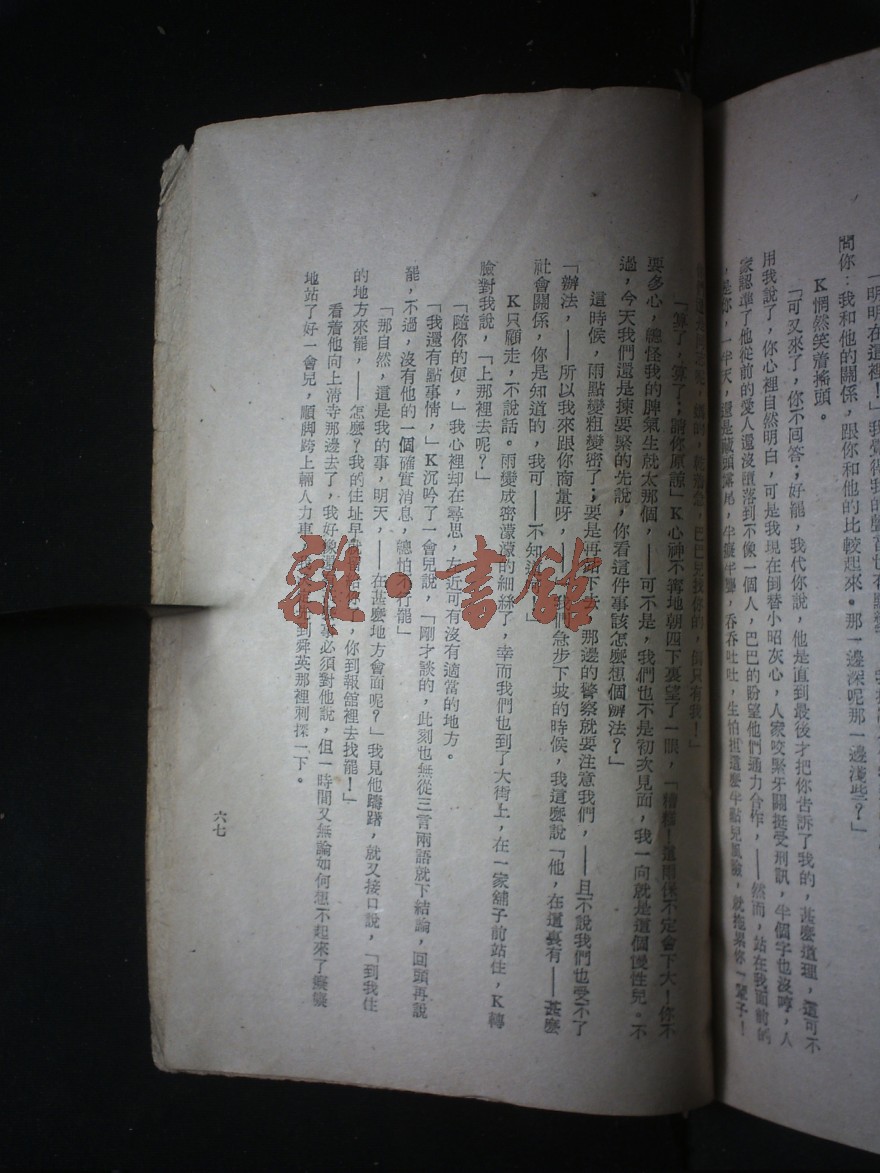 「明明在這裡！」我覺得我的聲音也有點
問你：我和他的關係，跟你和他的比較起來。那一邊深呢那一邊淺些？」
K惘然笑着搖頭。
「可又來了，你不回答；好罷，我代你說，他是直到最後才把你告訴了我的，甚麼道理，還可不
用我說了，你心裡自然明白，可是我現在倒替小昭灰心，人家咬緊牙關挺受刑訊，半個字也沒哼，人
家認準了他從前的愛人還沒墮落到不像一個人，巴巴的盼望他們通力合作，——然而，站在我面前的
，是你，一半天，還是藏頭露尾，半癡半聾，吞吞吐吐，生怕担這麼半點兒風險，就拖累你一輩子！
，乾着急，巴巴兒找你的，倒只有我！」
「算了，算了；請你原諒」K心神不寧地朝四下裏望了一眼，「糟糕！這雨後不定會下大！你不
要多心，總怪我的脾氣生就太那個，——可不是，我們也不是初次見面，我一向就是這個慢性兒。不
過，今天我們還是揀要緊的先說，你看這件事該怎麼想個辦法？」
這時候，雨點變粗變密了；要是再 下去，那邊的警察就要注意我們，——且不說我們也受不了
「辦法，——所以我來跟你商量呀，—— 我們急步下坡的時候，我這麼說「他，在這裏有——甚麼
社會關係，你是知道的，我可——不知道。」
K只顧走，不說話。雨變成密濛濛的細絲了，幸而我們也到了大街上，在一家舖子前站住，K轉
臉對我說，「上那裡去呢？」
「隨你的便，」我心裡却在尋思，左近可有沒有適當的地方。
「我還有點事情，」K沉吟了一會兒說，「剛才談的，此刻也無從三言兩語就下結論，回頭再說
罷，不過，沒有他的一個確實消息，總怕不行罷」
「那自然，這是我的事，明天，——在甚麼地方會面呢？」我見他躊躇，就又接口說，「到我住
的地方來罷，——怎麼？我的住址早就 你，你到報舘裡去找罷！」
看着他向上清寺那邊去了，我好像 事必須對他說，但一時間又無論如何想不起來了癡癡
地站了好一會兒，順脚跨上輛人力車， 到舜英那裡刺探一下。
六七
雜·書舘